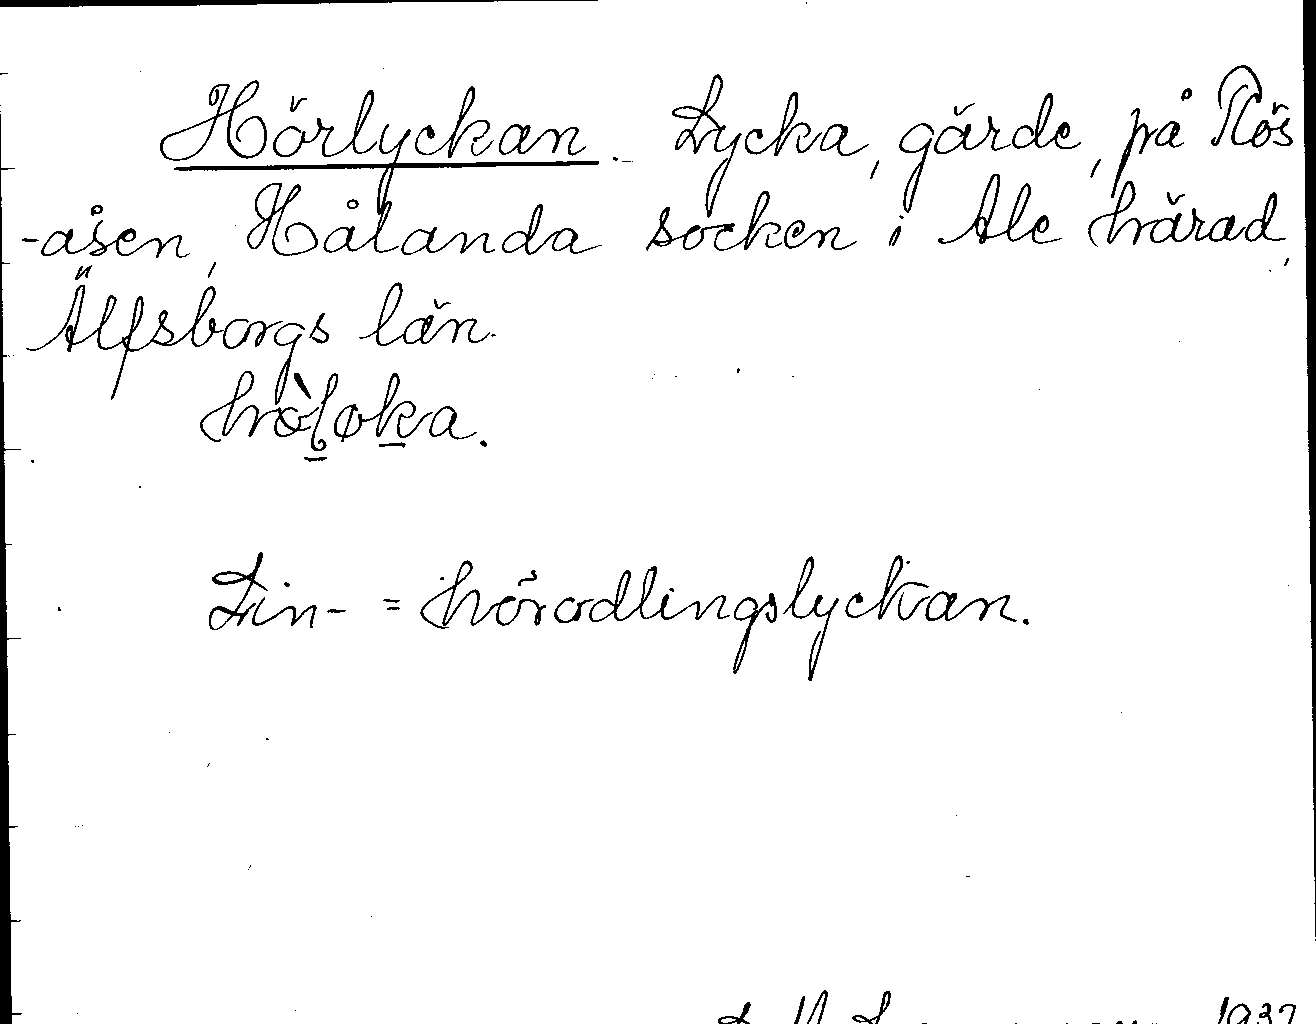 Hörlyckan. Lycka, gärde, på Rös
-åsen, Hålanda socken i Ale härad,
Älfsborgs län.
hòḻøḵa.
Lin- = hörodlingslyckan.
1937